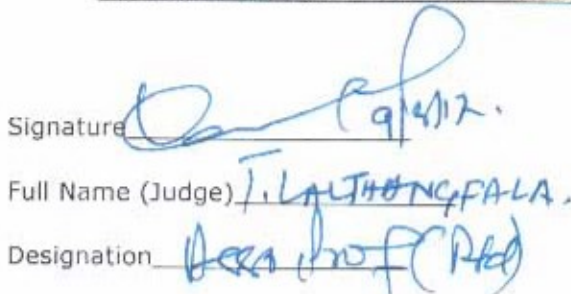 Signature 9/8/12.
Full Name (Judge) T. LALTHANGFALA.
Designation Prof (Rtd)